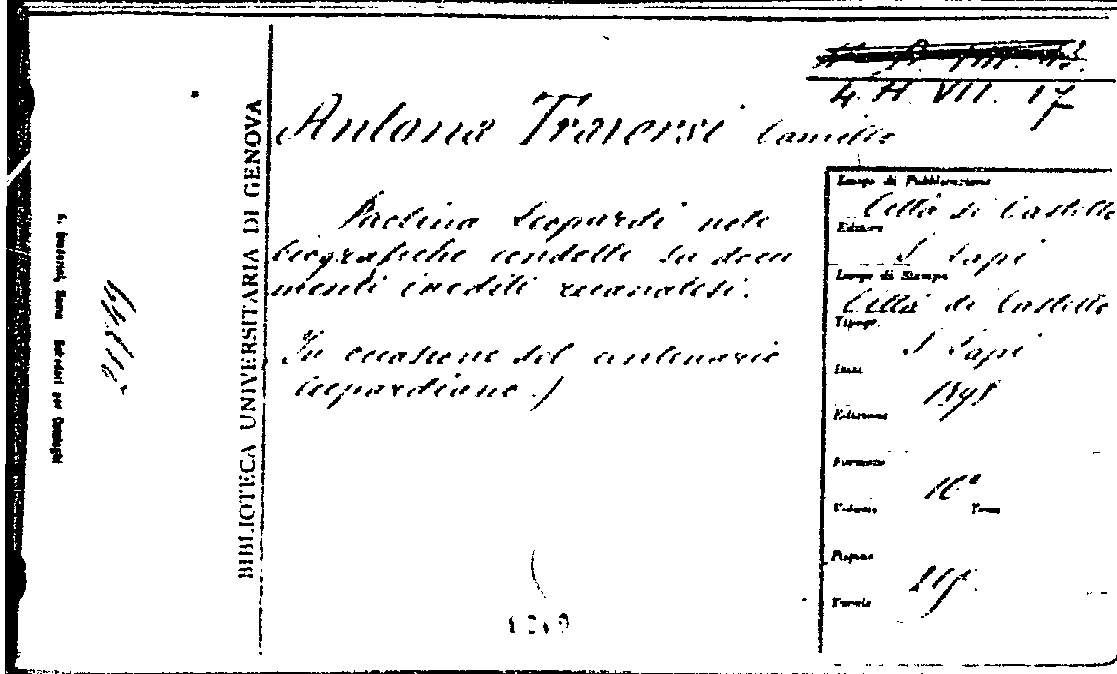 4. H. VII. 17
Antona Traversi Camillo
Paolina Leopardi note
biografiche condotte su docu
menti inediti recanatesi.
(In occasione del centenario
leopardiano.)
BIBLIOTECA UNIVERSITARIA DI GENOVA
Luogo di Pubblicazione
Città di Castello
Editore
S. Lapi
Luogo di Stampa
Città di Castello
Tipogr.
S. Lapi
Data
1898
Edizione
Formato
16°
Volume Tomo
Pagine
Tavole